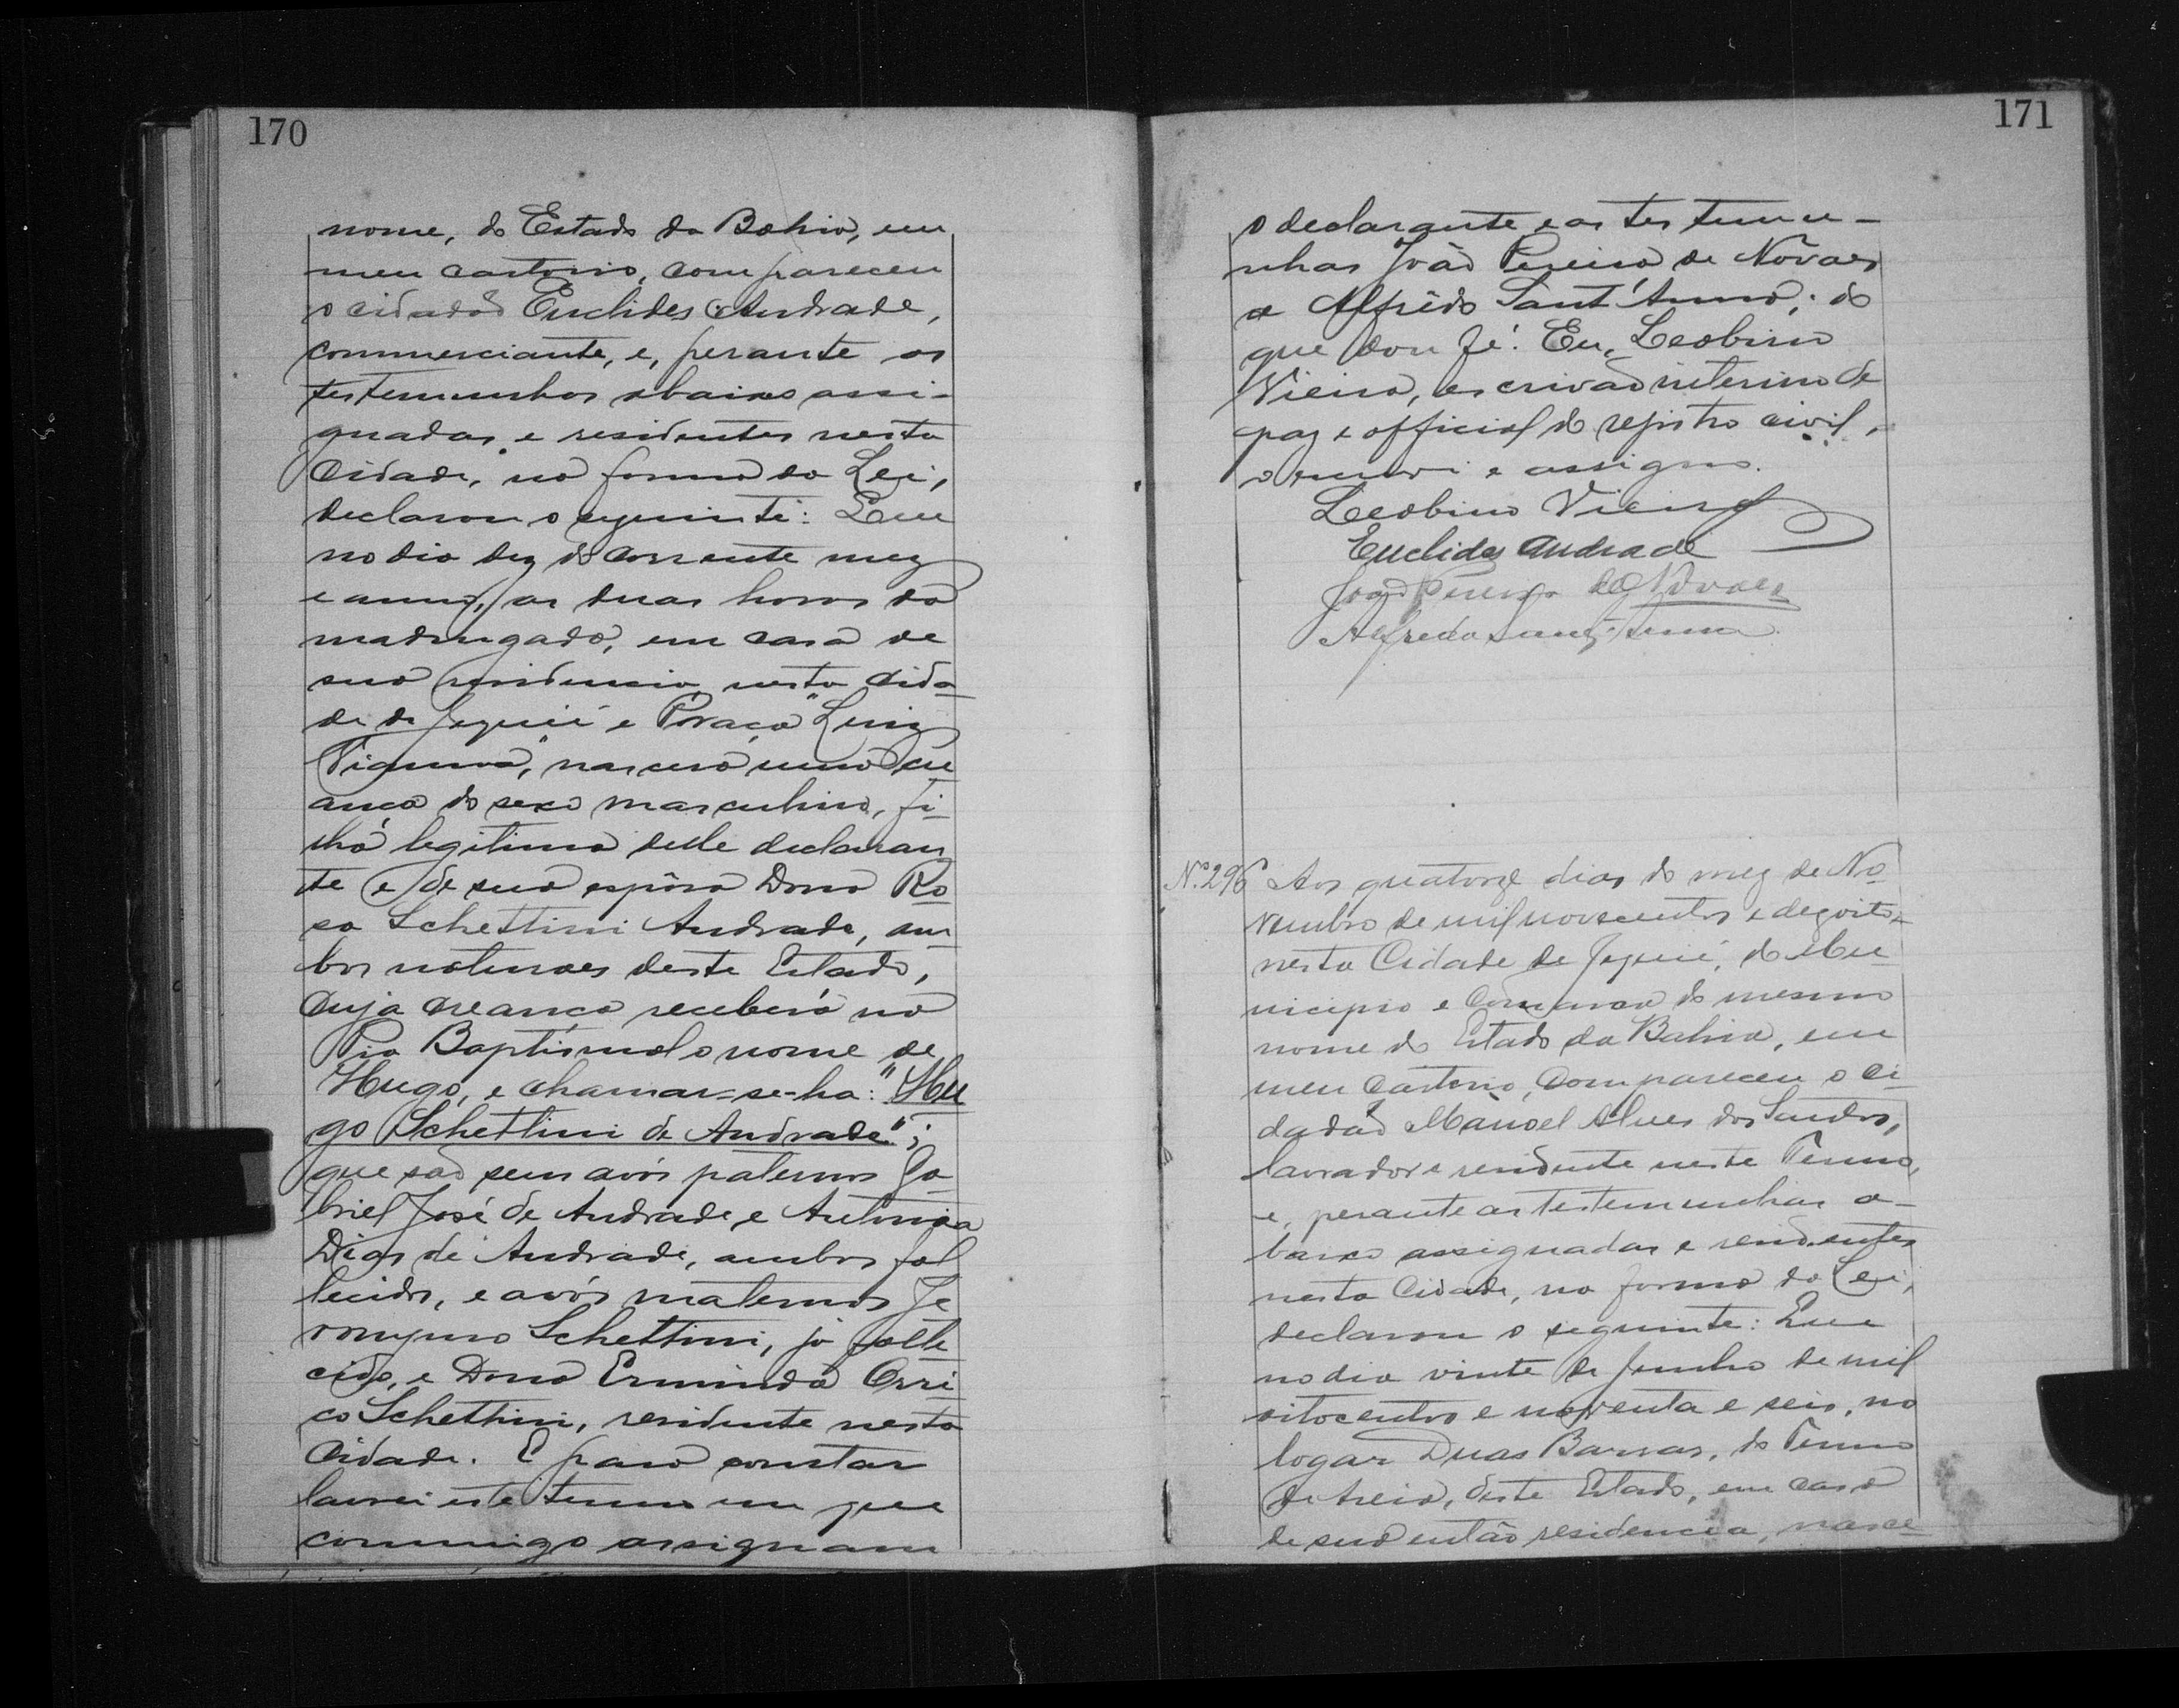 170
nome, do Estado da Bahia, em
meu cartorio, compareceu
o cidadão Euclides Andrade,
commerciante, e, perante as
testemunhas abaixo assi-
gnadas e residentes nesta
Cidade, na forma da Lei,
declarou o seguinte: Que
no dia dez do corrente mez
e anno, as duas horas da
madrugada, em casa de
sua residencia nesta Cida-
de de Jequié e Praça "Luiz
Vianna", nasceu uma cre
ança do sexo masculino, fi-
lha legitima delle declaran
te e de sua espôsa Dona Ro
sa Schettini Andrade, am
bos naturaes deste Estado,
cuja creança receberá na
Pia Baptismal o nome de
Hugo, e chamar-se-ha: "Hu
go Schettini de Andrade";
que são seus avós paternos Ga-
briel José de Andrade e Antonia
Dias de Andrade, ambos fal
lecidos, e avós maternos Je
ronymo Schettini, já falle
cido, e Dona Erminda Orri
co Schettini, residente nesta
Cidade. E para constar
lavrei este termo em que
commigo assignam
171
o declarante e as testemu-
nhas João Pereira de Novaes
e Alfrêdo Sant'Anna; do
que dou fé. Eu, Leobino
Vieira, escrivão interino de
paz e official do registro civil,
o escrevi e assigno.
Leobino Vieira
Euclides Andrade
João Pereira de Novaes
Alfredo Sant'Anna
Nº 296 Aos quatorze dias do mez de No
vembro de mil novecentos e dezoito,
nesta Cidade de Jequié, do Mu
nicipio e Comarca do mesmo
nome do Estado da Bahia, em
meu Cartorio, compareceu o ci-
dadão Manoel Alves dos Santos,
lavrador e residente neste Termo,
e, perante as testemunhas a-
baixo assignadas e residentes
nesta Cidade, na forma da Lei,
declarou o seguinte: Que
no dia vinte de Junho de mil
oitocentos e noventa e seis, no
logar Duas Barras, do Termo
de Areia, deste Estado, em casa
de sua então residencia, nasce